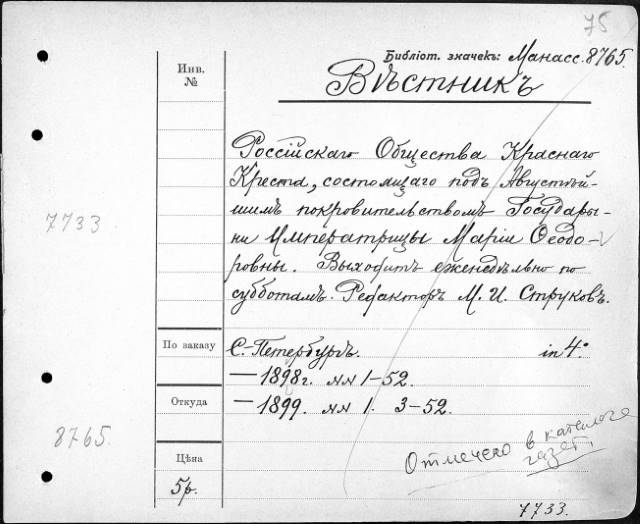 75
Библіот. значекъ: Манасс. 8765.
Инв.
№
Вѣстникъ
Россійскаго Общества Краснаго
Креста, состоящаго подъ Августѣй-
7733.
шимъ покровительствомъ Государы-
ни Императрицы Маріи Ѳеодо-
ровны. Выходитъ еженедѣльно по
субботамъ. Редакторъ М. И. Струковъ.
По заказу
С.-Петербургъ. in 4°.
— 1898 г. №№ 1-52.
Откуда
— 1899. №№ 1. 3-52.
8765.
Отмечено в каталоге
газет.
Цѣна
5 р.
7733.